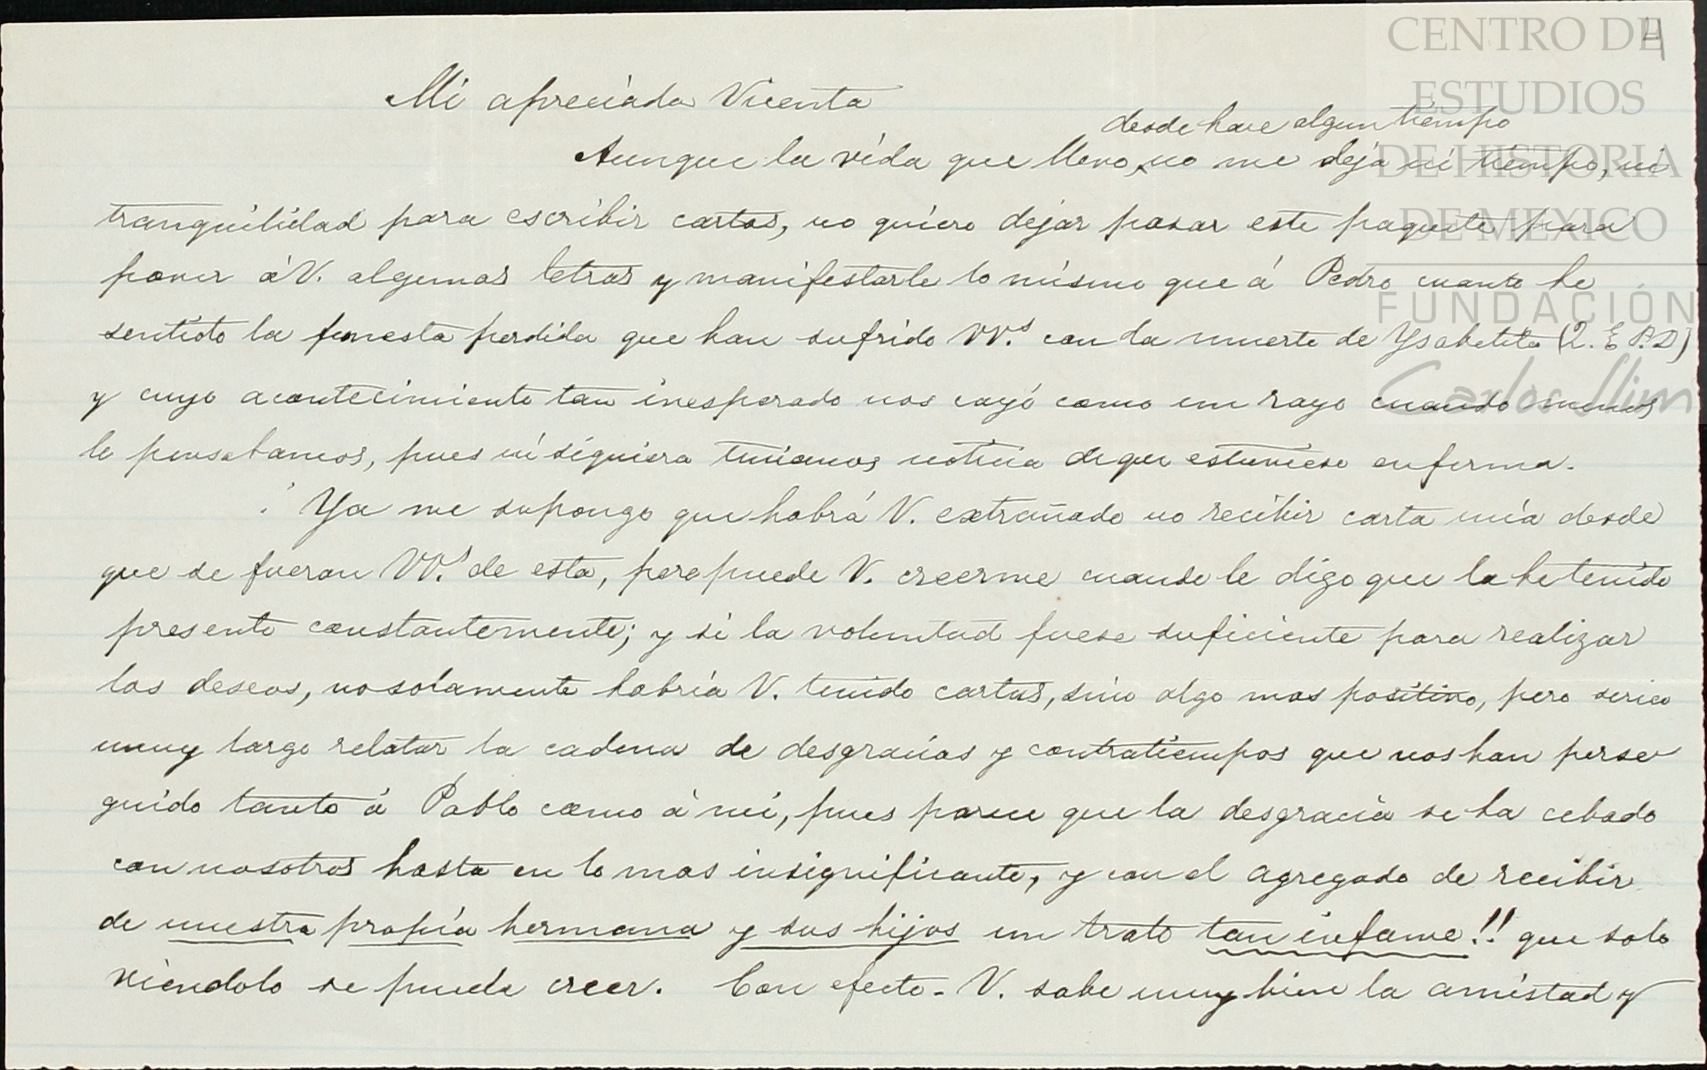 CENTRO DE
ESTUDIOS
DE HISTORIA
DE MEXICO
FUNDACIÓN
Carlos Slim
4
Mi apreciada Vicenta
desde hace algun tiempo
Aunque la vida que llevo, no me deja ni tiempo, ni
tranquilidad para escribir cartas, no quiero dejar pasar este paquete para
poner á V. algunas letras y manifestarle lo mismo que á Pedro cuanto he
sentido la funesta perdida que han sufrido VV.s con la muerte de Ysabelita (Q. E. P. D)
y cuyo acontecimiento tan inesperado nos cayó como un rayo cuando menos
lo pensabamos, pues ni siquiera teniamos noticia de que estuviese enferma.
Ya me supongo que habrá V. extrañado no recibir carta mia desde
que se fueron VV.s de esta, pero puede V. creerme cuando le digo que la he tenido
presente constantemente; y si la voluntad fuese suficiente para realizar
los deseos, no solamente habria V. tenido cartas, sino algo mas positivo, pero seria
muy largo relatar la cadena de desgracias y contratiempos que nos han perse
guido tanto á Pablo como á mi, pues parece que la desgracia se ha cebado
con nosotros hasta en lo mas insignificante, y con el agregado de recibir
de nuestra propia hermana y sus hijos un trato tan infame!! que solo
viendolo se puede creer. Con efecto - V. sabe muy bien la amistad y